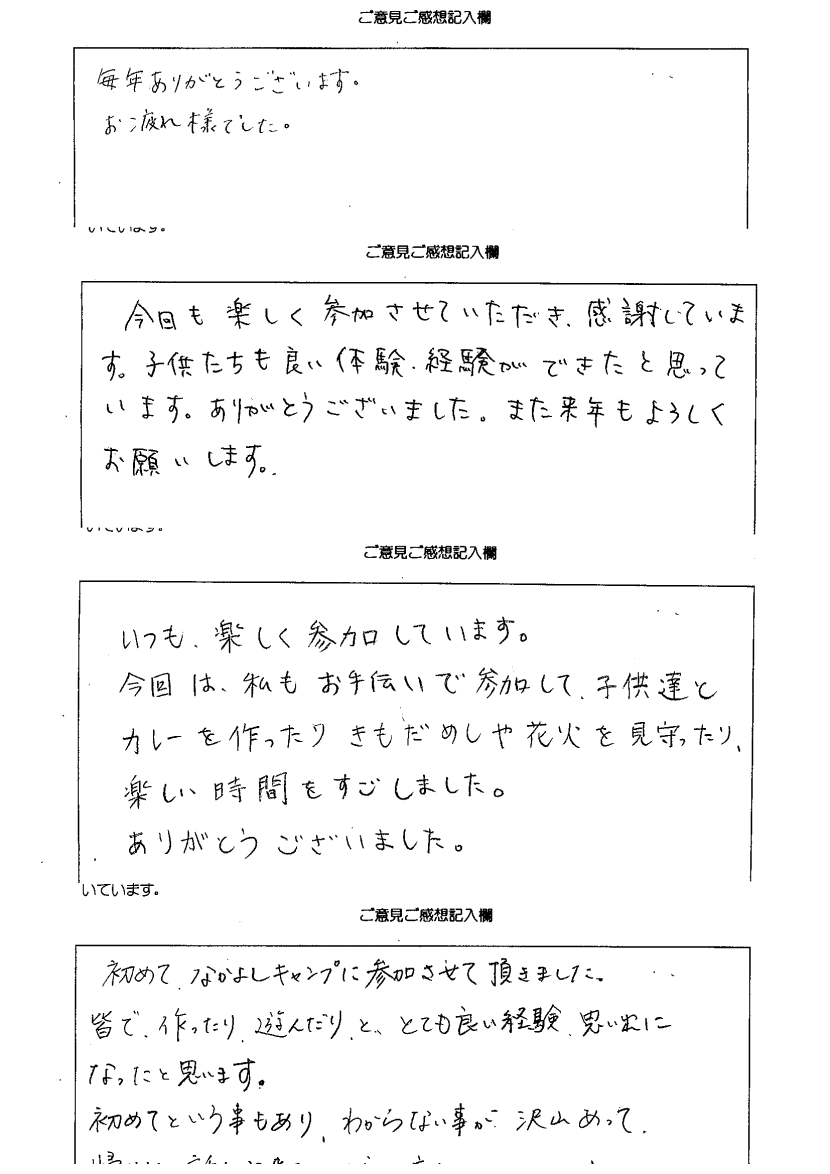 ご意見ご感想記入欄
毎年ありがとうございます。
お疲れ様でした。
いています。
ご意見ご感想記入欄
今回も楽しく参加させていただき、感謝していま
す。子供たちも良い体験・経験ができたと思って
います。ありがとうございました。また来年もよろしく
お願いします。
いています。
ご意見ご感想記入欄
いつも、楽しく参加しています。
今回は、私もお手伝いで参加して、子供達と
カレーを作ったりきもだめしや花火を見守ったり、
楽しい時間をすごしました。
ありがとうございました。
いています。
ご意見ご感想記入欄
初めて、なかよしキャンプに参加させて頂きました。
皆で、作ったり、遊んだり、と、とても良い経験、思い出に
なったと思います。
初めてという事もあり、わからない事が沢山あって、